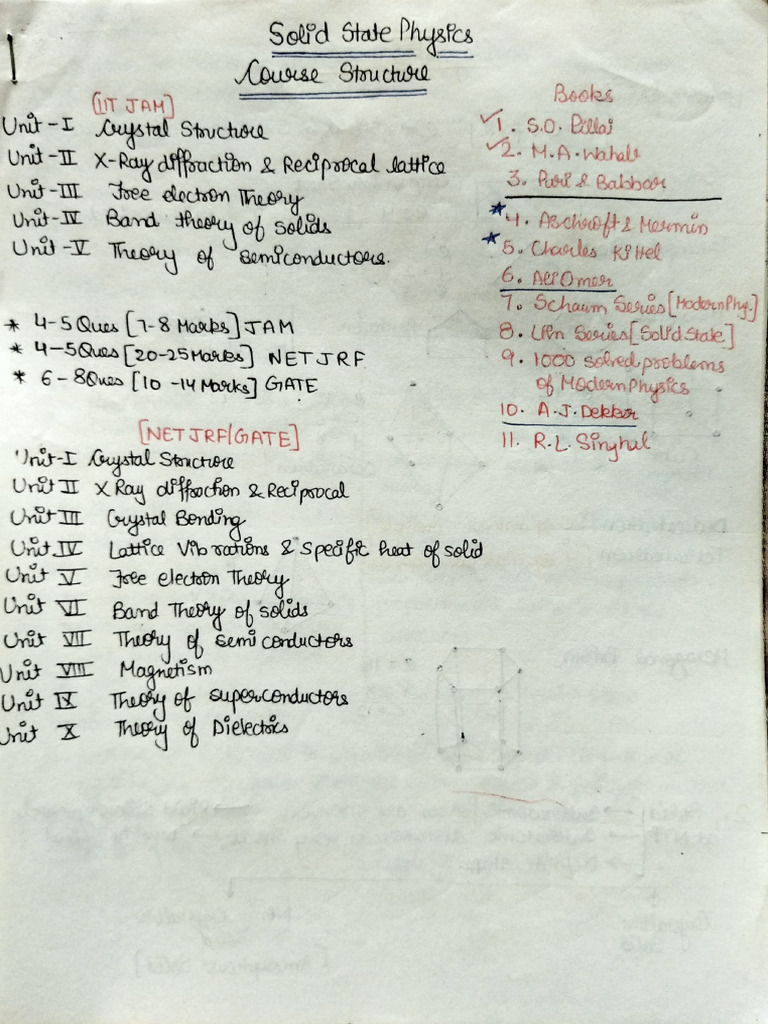 Solid State Physics
Course Structure
[IIT JAM]
Unit-I Crystal Structure
Unit-II X-Ray diffraction & Reciprocal lattice
Unit-III Free electron Theory
Unit-IV Band theory of solids
Unit-V Theory of semiconductors.
* 4-5 Ques [7-8 Marks] JAM
* 4-5 Ques [20-25 Marks] NET JRF
* 6-8 Ques [10-14 Marks] GATE
Books
1. S.O. Pillai
2. M.A. Wahab
3. Puri & Babbar
4. Aschroft & Mermin
5. Charles Kittel
6. Ali Omer
7. Schaum Series [Modern Phy.]
8. Series [Solid State]
9. 1000 solved problems
of Modern Physics
10. A.J. Dekker
11. R.L. Singhal
[NET JRF/GATE]
Unit-I Crystal Structure
Unit II X Ray diffraction & Reciprocal
Unit III Crystal Bonding
Unit IV Lattice Vibrations & Specific heat of solid
Unit V Free electron Theory
Unit VI Band Theory of solids
Unit VII Theory of semiconductors
Unit VIII Magnetism
Unit IX Theory of superconductors
Unit X Theory of Dielectrics